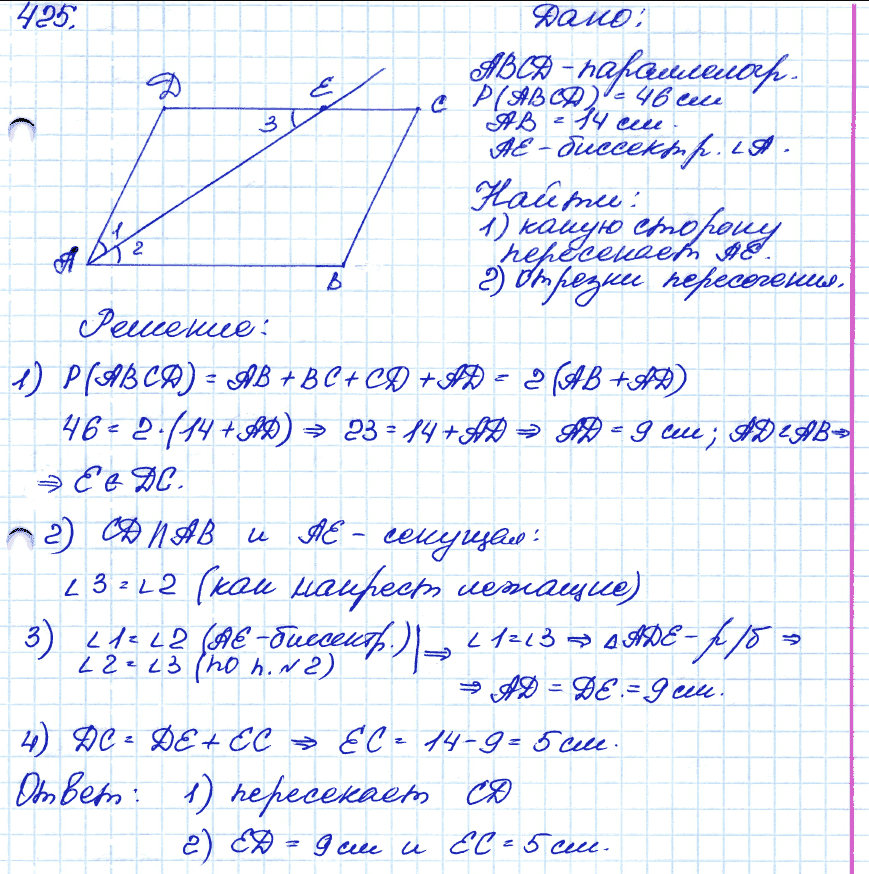 425.
Дано:
ABCD - параллелогр.
P(ABCD) = 46 см
AB = 14 см.
AE - биссектр. ∠A.
Найти:
1) какую сторону
пересекает AE.
2) Отрезки пересечения.
D E C
3
1
2
A B
Решение:
1) P(ABCD) = AB + BC + CD + AD = 2(AB + AD)
46 = 2·(14 + AD) ⇒ 23 = 14 + AD ⇒ AD = 9 см; AD < AB ⇒
⇒ E ∈ DC.
2) CD || AB и AE - секущая:
∠3 = ∠2 (как накрест лежащие)
3) ∠1 = ∠2 (AE - биссектр.) | ⇒ ∠1 = ∠3 ⇒ △ADE - р/б ⇒
∠2 = ∠3 (по п. №2)
⇒ AD = DE = 9 см.
4) DC = DE + EC ⇒ EC = 14 - 9 = 5 см.
Ответ: 1) пересекает CD
2) ED = 9 см и EC = 5 см.